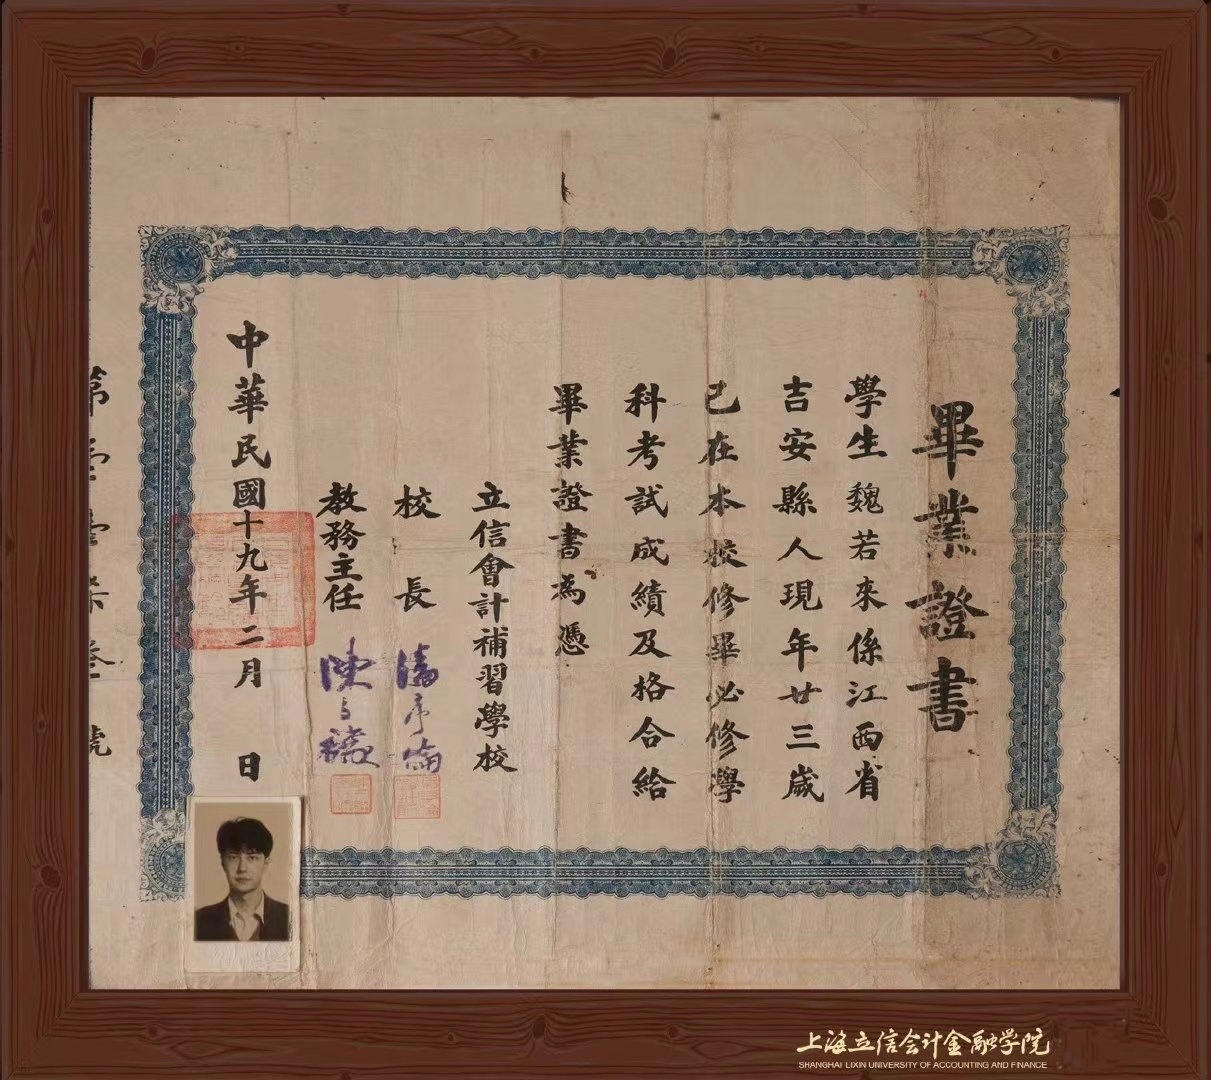 畢業證書
學生魏若來係江西省
吉安縣人現年廿三歲
已在本校修畢必修學
科考試成績及格合給
畢業證書為憑
立信會計補習學校
校長 潘序倫
教務主任 陳
中華民國十九年二月 日
第 號
上海立信会计金融学院
SHANGHAI LIXIN UNIVERSITY OF ACCOUNTING AND FINANCE